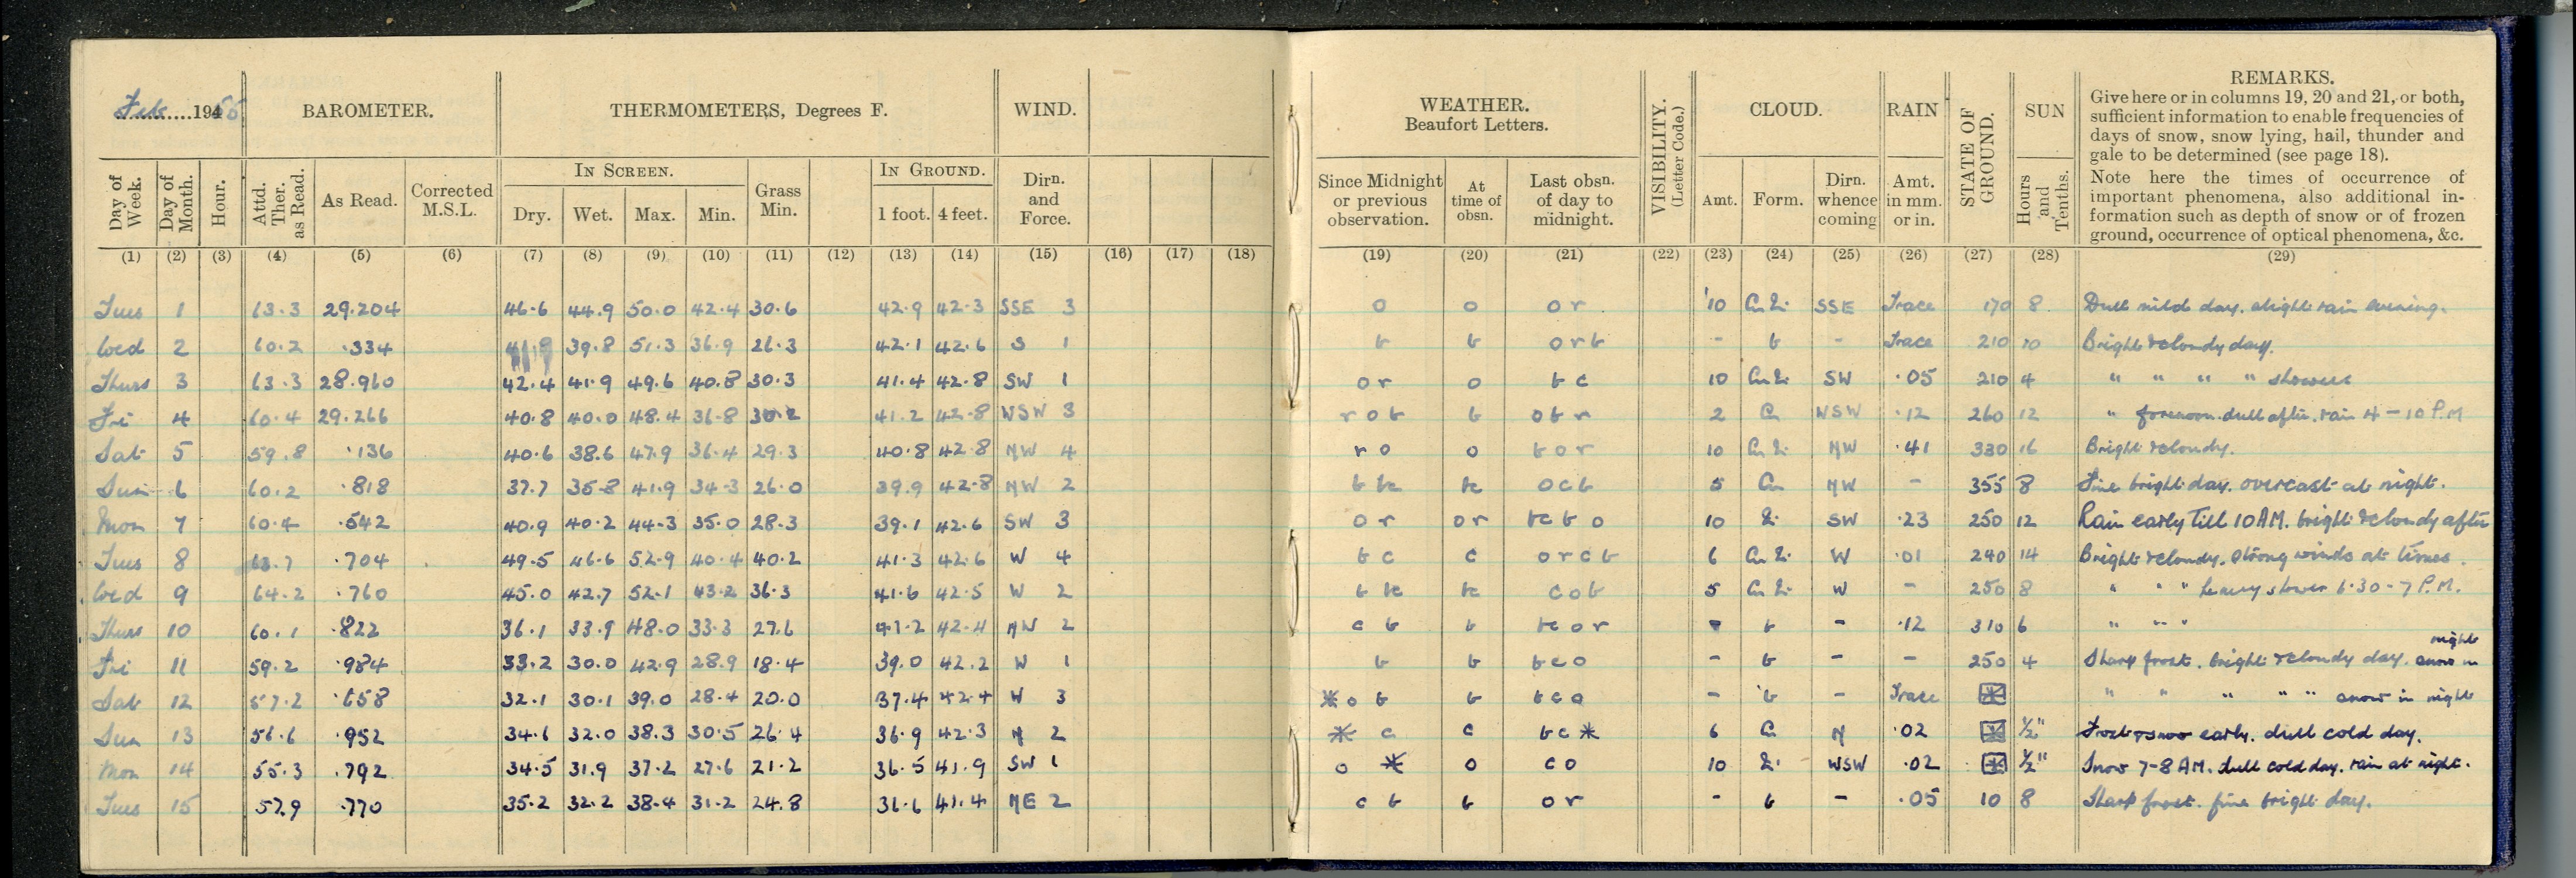 Feb 1955 BAROMETER. THERMOMETERS, Degrees F. WIND.
In Screen. In Ground.
Day of Week. Day of Month. Hour. Attd. Ther. as Read. As Read. Corrected M.S.L. Dry. Wet. Max. Min. Grass Min. 1 foot. 4 feet. Dirn. and Force.
(1) (2) (3) (4) (5) (6) (7) (8) (9) (10) (11) (12) (13) (14) (15) (16) (17) (18)
Tues 1 63.3 29.204 46.6 44.9 50.0 42.4 30.6 42.9 42.3 SSE 3
Wed 2 60.2 .334 39.8 51.3 36.9 26.3 42.1 42.6 S 1
Thurs 3 63.3 28.960 42.4 41.9 49.6 40.8 30.3 41.4 42.8 SW 1
Fri 4 60.4 29.266 40.8 40.0 48.4 36.8 30.2 41.2 42.8 WSW 3
Sat 5 59.8 .136 40.6 38.6 47.9 36.4 29.3 40.8 42.8 NW 4
Sun 6 60.2 .818 37.7 35.8 41.9 34.3 26.0 39.9 42.8 NW 2
Mon 7 60.4 .542 40.9 40.2 44.3 35.0 28.3 39.1 42.6 SW 3
Tues 8 63.7 .704 49.5 46.6 52.9 40.4 40.2 41.3 42.6 W 4
Wed 9 64.2 .760 45.0 42.7 52.1 43.2 36.3 41.6 42.5 W 2
Thurs 10 60.1 .822 36.1 33.9 48.0 33.3 27.6 41.2 42.4 NW 2
Fri 11 59.2 .984 33.2 30.0 42.9 28.9 18.4 39.0 42.2 W 1
Sat 12 57.2 .658 32.1 30.1 39.0 28.4 20.0 37.4 42.4 W 3
Sun 13 56.6 .952 34.6 32.0 38.3 30.5 26.4 36.9 42.3 N 2
Mon 14 55.3 .792 34.5 31.9 37.2 27.6 21.2 36.5 41.9 SW 1
Tues 15 57.9 .770 35.2 32.2 38.4 31.2 24.8 36.6 41.4 NE 2
WEATHER. Beaufort Letters. VISIBILITY. (Letter Code.) CLOUD. RAIN STATE OF GROUND. SUN REMARKS.
Give here or in columns 19, 20 and 21, or both,
sufficient information to enable frequencies of
days of snow, snow lying, hail, thunder and
gale to be determined (see page 18).
Note here the times of occurrence of
important phenomena, also additional in-
formation such as depth of snow or of frozen
ground, occurrence of optical phenomena, &c.
Since Midnight or previous observation. At time of obsn. Last obsn. of day to midnight. Amt. Form. Dirn. whence coming Amt. in mm. or in. Hours and Tenths.
(19) (20) (21) (22) (23) (24) (25) (26) (27) (28) (29)
o o o r 10 Cu St. SSE Trace 170 8 Dull mild day. slight rain evening.
b b o r b - b - Trace 210 10 Bright & cloudy day.
o r o b c 10 Cu St. SW .05 210 4 " " " " showers
r o b b o b r 2 Cu WSW .12 260 12 " forenoon. dull after. rain 4 - 10 P.M
r o o b o r 10 Cu St. NW .41 330 16 Bright & cloudy.
b bc bc o c b 5 Cu NW - 355 8 Fine bright day. overcast at night.
o r o r bc b o 10 St. SW .23 250 12 Rain early till 10 AM. bright & cloudy after
b c c o r c b 6 Cu St. W .01 240 14 Bright & cloudy. Strong winds at times.
b bc bc c o b 5 Cu St. W - 250 8 " " " heavy shower 6.30 - 7 P.M.
c b b bc o r - b - .12 310 6 " " " "
b b b c o - b - - 250 4 Sharp frost. bright & cloudy day. snow in night
* o b b b c o - b - Trace * " " " " " snow in night
* c c b c * 6 Cu N .02 * ½" Frost & snow early. dull cold day.
o * o c o 10 St. WSW .02 * ½" Snow 7-8 AM. dull cold day. rain at night.
c b b o r - b - .05 10 8 Sharp frost. fine bright day.